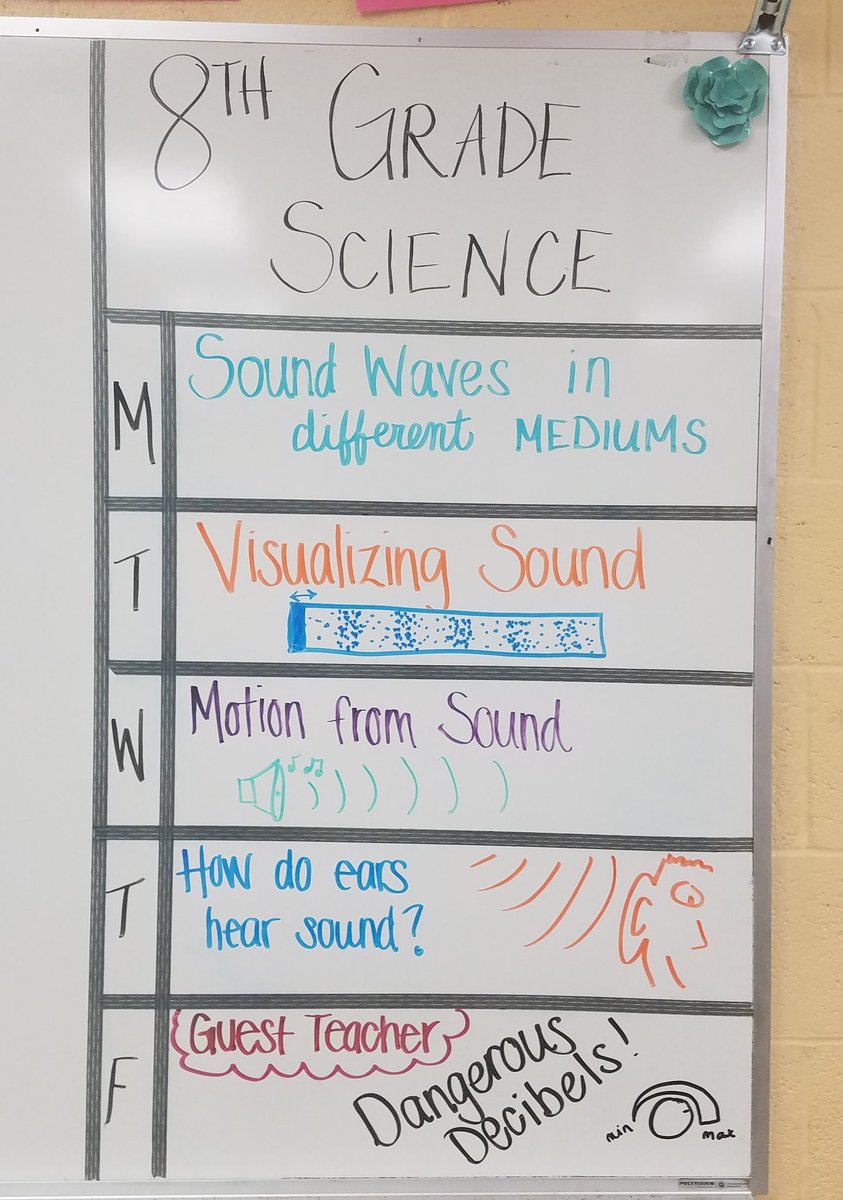 8TH GRADE
SCIENCE
M
Sound Waves in
different MEDIUMS
T
Visualizing Sound
W
Motion from Sound
T
How do ears
hear sound?
F
Guest Teacher
Dangerous
Decibels!
min
max
POLYVISION